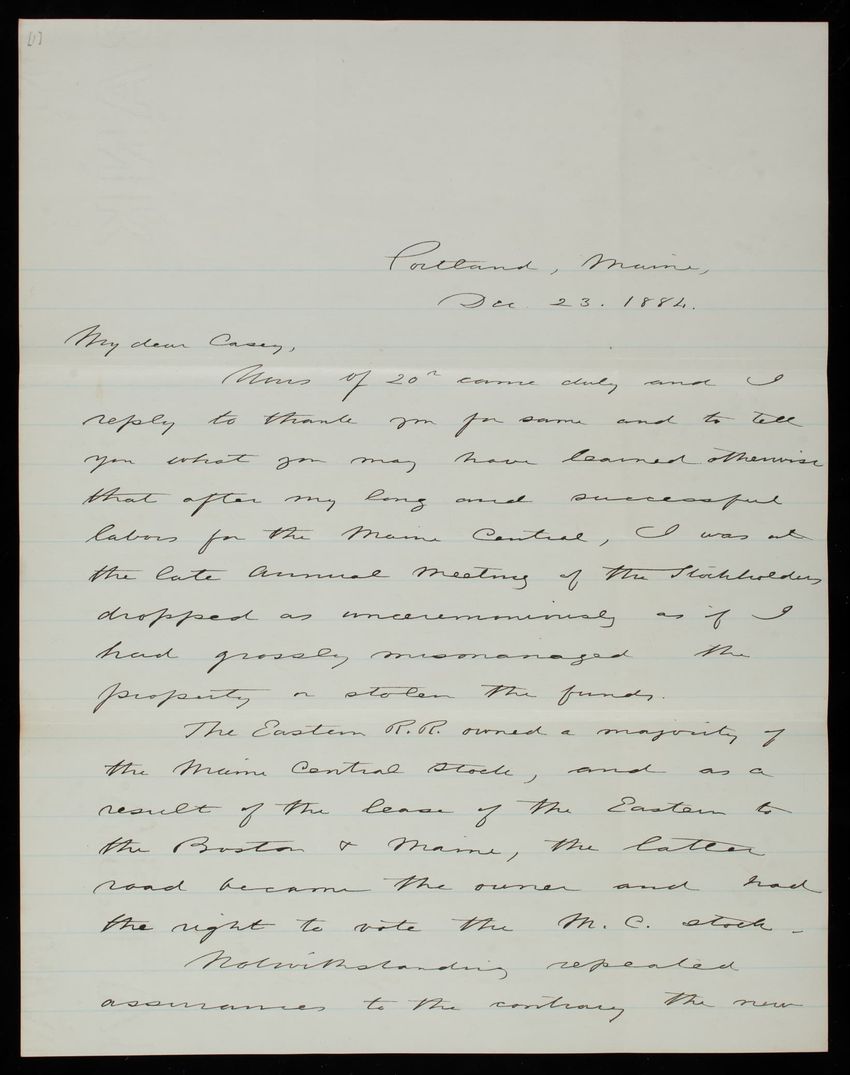 [1]
Portland, Maine,
Dec 23. 1884.
My dear Casey,
Yours of 20" came duly and I
reply to thank you for same and to tell
you what you may have learned otherwise
that after my long and successful
labors for the Maine Central, I was at
the late Annual Meeting of the Stockholders
dropped as unceremoniously as if I
had grossly mismanaged the
property or stolen the funds.
The Eastern R.R. owned a majority of
the Maine Central Stock, and as a
result of the lease of the Eastern to
the Boston & Maine, the latter
road became the owner and had
the right to vote the M. C. stock -
Notwithstanding repeated
assurances to the contrary the new